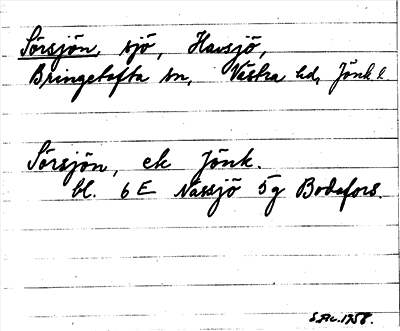 Sörsjön, sjö, Havsjö,
Bringetofta sn, Västra hd, Jönk l
Sörsjön, ek Jönk.
bl. 6E Nässjö 5g Bodafors.
1958.